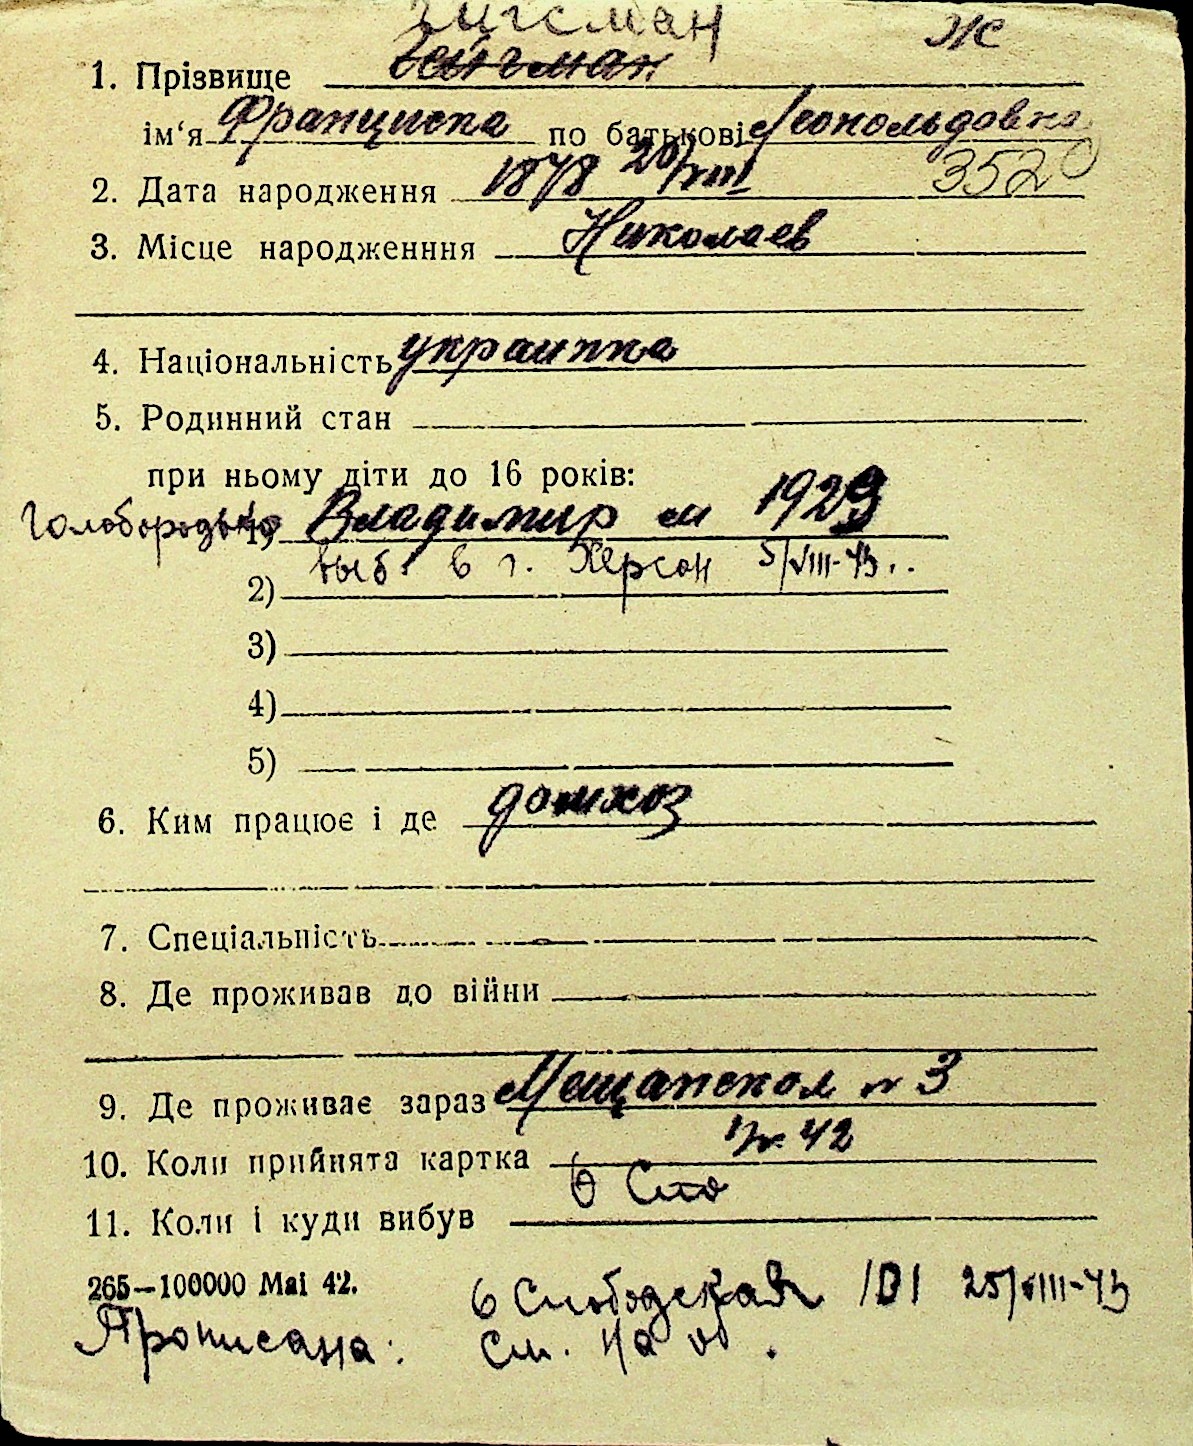 Зигсман Ж
1. Прізвище Зейгман
ім‘я Франциска по батькові Леопольдовна
2. Дата народження 1878 20/VIII 352
3. Місце народженння Николаев
4. Національність украинка
5. Родинний стан
при ньому діти до 16 років:
Голобородько 1) Владимир м 1929
2) выб. в г. Херсон 5/VIII-43..
3)
4)
5)
6. Ким працює і де домхоз
7. Спеціальність
8. Де проживав до війни
9. Де проживає зараз Мещанская № 3
10. Коли прийнята картка 42
11. Коли і куди вибув 6 Сло
265—100000 Mai 42.
6 Слободская 101 25/VIII-43
Прописана: см. на об.